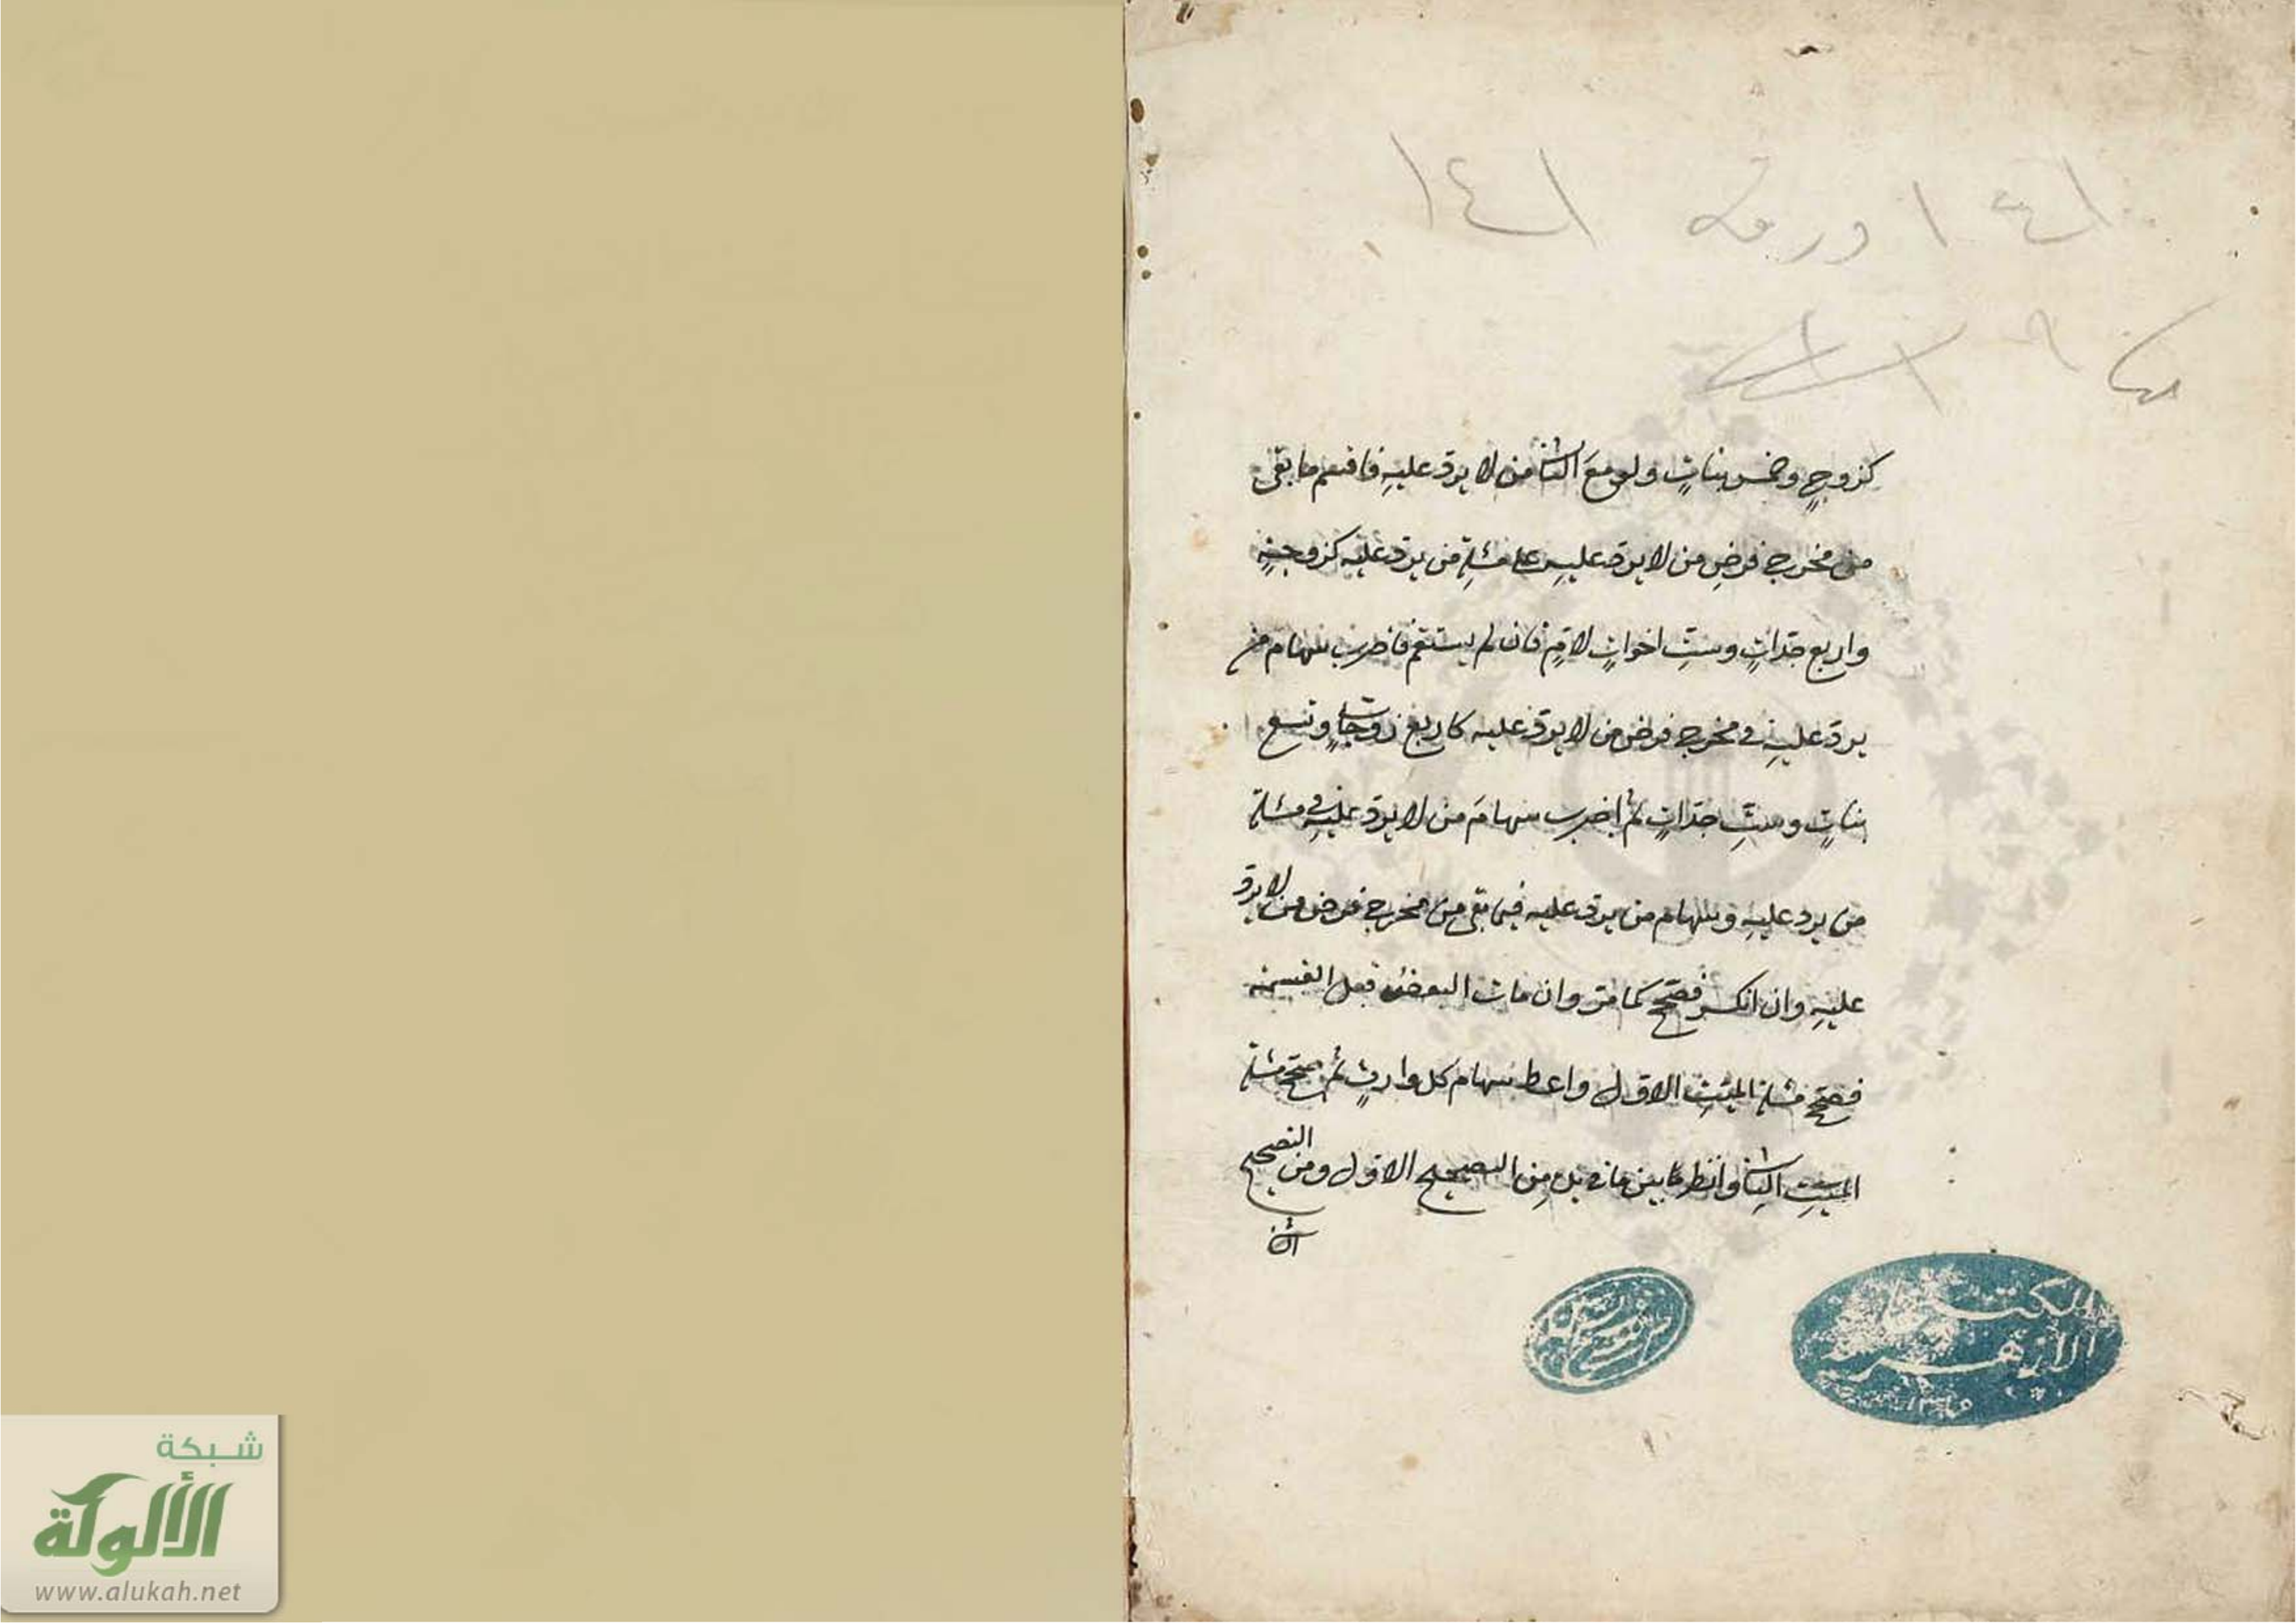 ١٤١ ورقة ١٤١
كزوجٍ وخمسِ بناتٍ ولو معَ الثاني من لا يردّ عليهِ فاقسم ما بقى
من مخرج فرضِ من لا يردّ عليهِ على مسئلةِ من يردّ عليه كزوجةٍ
واربع جدّاتٍ وستِّ اخواتٍ لامٍّ فان لم يستقم فاضرب سهام من
يردّ عليهِ في مخرج فرض من لا يردّ عليه كاربع زوجاتٍ وتسع
بناتٍ وستِّ جدّاتٍ ثم اضرب سهامَ من لا يردّ عليهِ في مسئلة
من يرد عليهِ وسهام من يردّ عليه فيما بقى من مخرج فرض من لا يردّ
عليهِ وان انكسر فصحّح كما مرّ وان مات البعض قبل القسمة
فصحّح مسئلة الميّتِ الاوّل واعط سهام كل وارثٍ ثم صحّح مسئلة
الميّتِ الثاني وانظر ما بين ما في يده من التصحيح الاوّل ومن التصحيح
الثاني
المكتبة
الازهرية
شبكة
الألوكة
www.alukah.net